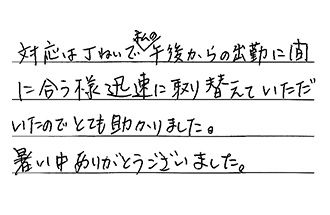 対応は丁ねいで私の午後からの出勤に間
に合う様迅速に取り替えていただ
いたのでとても助かりました。
暑い中ありがとうございました。